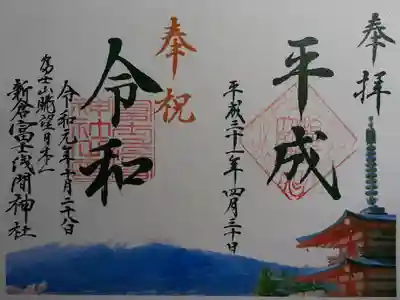 奉拝
平成
平成三十一年四月三十日
奉祝
令和
令和元年十月二十八日
富士山眺望日本一
新倉富士浅間神社